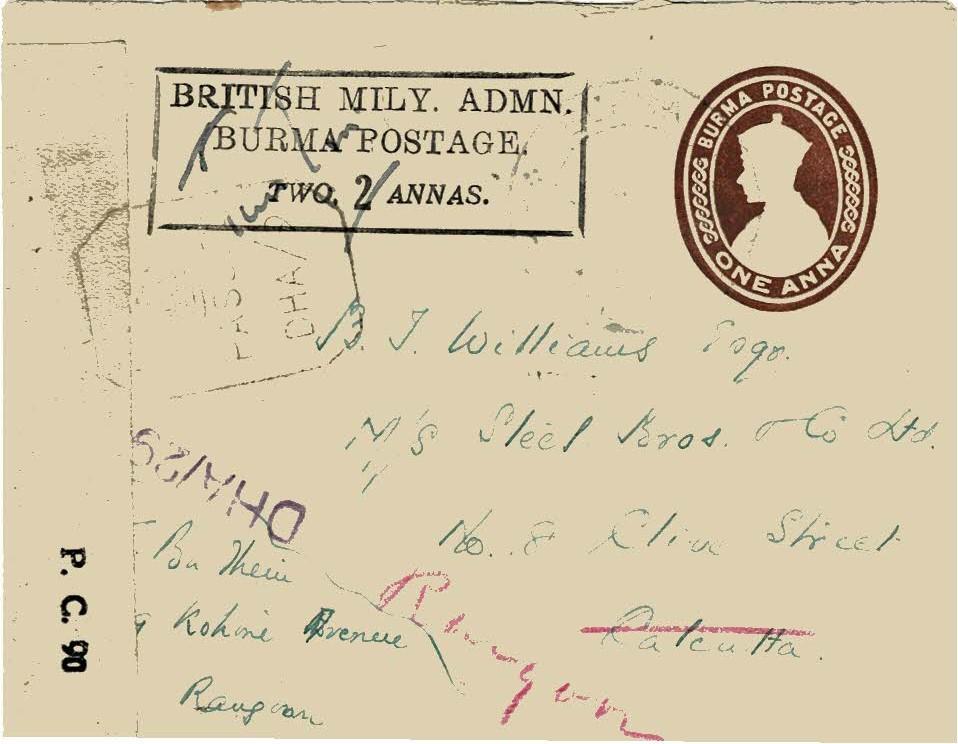 BRITISH MILY. ADMN.
BURMA POSTAGE.
TWO. 2 ANNAS.
BURMA POSTAGE
ONE ANNA
PAS
DHA/
B. J. Williams Esqr.
M/s Steel Bros. & Co Ltd.
No. 8 Clive Street
Calcutta.
Rangoon
DHA/29
Ba Thein
Kokine Avenue
Rangoon
P. C. 90